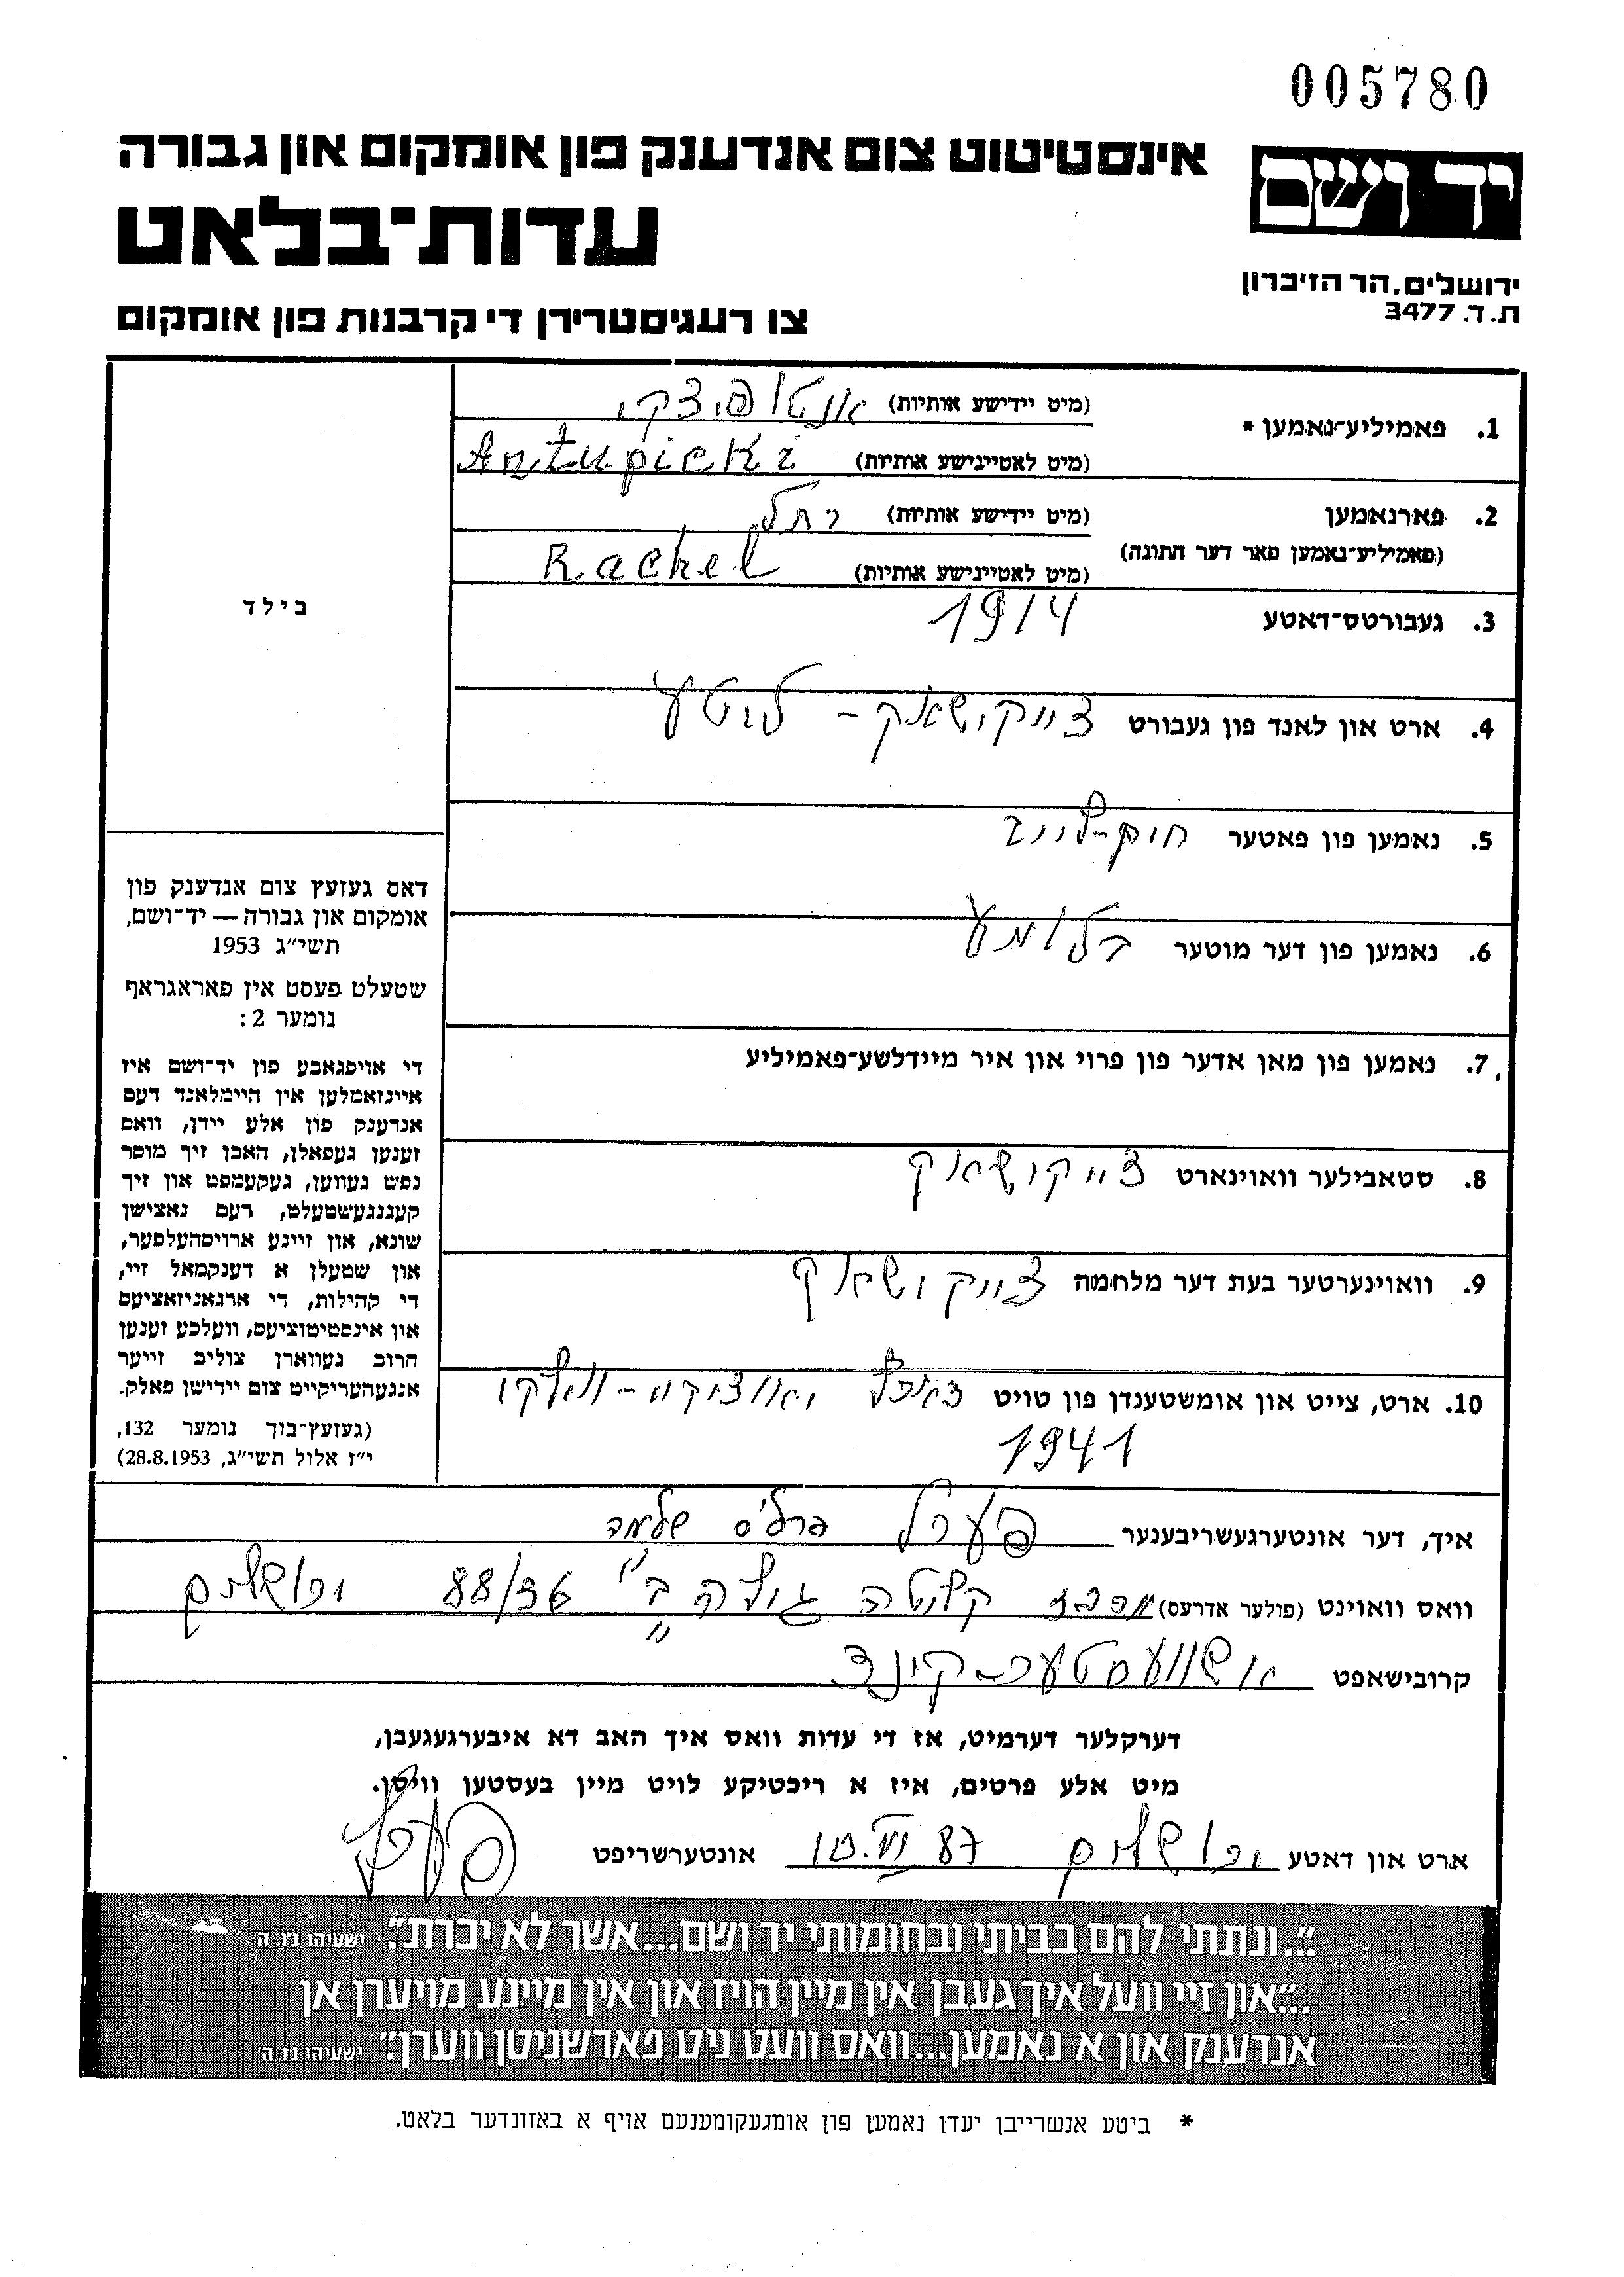 005780
יד ושם
אינסטיטוט צום אנדענק פון אומקום און גבורה
עדות־בלאט
ירושלים, הר הזיכרון
ת. ד. 3477
צו רעגיסטרירן די קרבנות פון אומקום
1. פאמיליע־נאמען * (מיט יידישע אותיות) אנטופיצקי
(מיט לאטיינישע אותיות) Antupicki
2. פארנאמען (מיט יידישע אותיות) רחל
(פאמיליע־נאמען פאר דער חתונה)
(מיט לאטיינישע אותיות) Rachel
3. געבורטס־דאטע 1914
4. ארט און לאנד פון געבורט צייקישאק - ליטע
5. נאמען פון פאטער חיים-לייב
6. נאמען פון דער מוטער בלומע
7. נאמען פון מאן אדער פון פרוי און איר מיידלשע־פאמיליע
8. סטאבילער וואוינארט צייקישאק
9. וואוינערטער בעת דער מלחמה צייקישאק
10. ארט, צייט און אומשטענדן פון טויט
1941
בילד
דאס געזעץ צום אנדענק פון
אומקום און גבורה — יד־ושם,
תשי״ג 1953
שטעלט פעסט אין פאראגראף
נומער 2:
די אויפגאבע פון יד־ושם איז
איינזאמלען אין היימלאנד דעם
אנדענק פון אלע יידן, וואס
זענען געפאלן, האבן זיך מוסר
נפש געווען, געקעמפט און זיך
קעגנגעשטעלט, דעם נאצישן
שונא, און זיינע ארויסהעלפער,
און שטעלן א דענקמאל זיי,
די קהילות, די ארגאניזאציעס
און אינסטיטוציעס, וועלכע זענען
הרוב געווארן צוליב זייער
אנגעהעריקייט צום יידישן פאלק.
(געזעץ־בוך נומער 132,
י״ז אלול תשי״ג, 28.8.1953)
איך, דער אונטערגעשריבענער פערל פרלס שלמה
וואס וואוינט (פולער אדרעס) קליטה גילה ב" 88/36 ירושלים
קרובישאפט א שוועסטער-קינד
דערקלער דערמיט, אז די עדות וואס איך האב דא איבערגעגעבן,
מיט אלע פרטים, איז א ריכטיקע לויט מיין בעסטען וויסן.
ארט און דאטע ירושלים 10.VI 87 אונטערשריפט פערל
"...ונתתי להם בביתי ובחומותי יד ושם...אשר לא יכרת". ישעיהו נו, ה'
..."און זיי וועל איך געבן אין מיין הויז און אין מיינע מויערן אן
אנדענק און א נאמען...וואס וועט ניט פארשניטן ווערן". ישעיהו נו, ה'
* ביטע אנשרייבן יעדן נאמען פון אומגעקומענעם אויף א באזונדער בלאט.